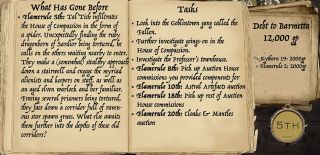 What Has Gone Before
Flamerule 5th: Tal'Tish infiltrates
the House of Compassion in the form of
a spider. Unexpectedly finding the ruby
dragonborn of Sambar being tortured, he
calls in the others waiting nearby to enter.
They make a (somewhat) stealthy approach
down a stairwell and engage the myriad
alienists and keepers on staff, as well as
an aged elven warlock and her familiar.
Freeing several prisoners being tortured,
they face down a corridor full of raven-
ous star spawn grues. What else awaits
them further into the depths of these old
corridors?
Tasks
- Look into the Goblintown gang called the
Fallen.
- Further investigate goings-on in the
House of Compassion.
- Investigate the Professor's townhouse.
- Flamerule 8th: Pick up Auction House
commissions you provided components for
- Flamerule 10th: Astral Artifacts auction
- Flamerule 18th: Pick up rest of Auction
House commissions
- Flamerule 20th: Cloaks & Mantles
auction
Debt to Barnetta
12,000 gp
- Kythorn 19: 2000gp
- Flamerule 2: 2000gp
5TH